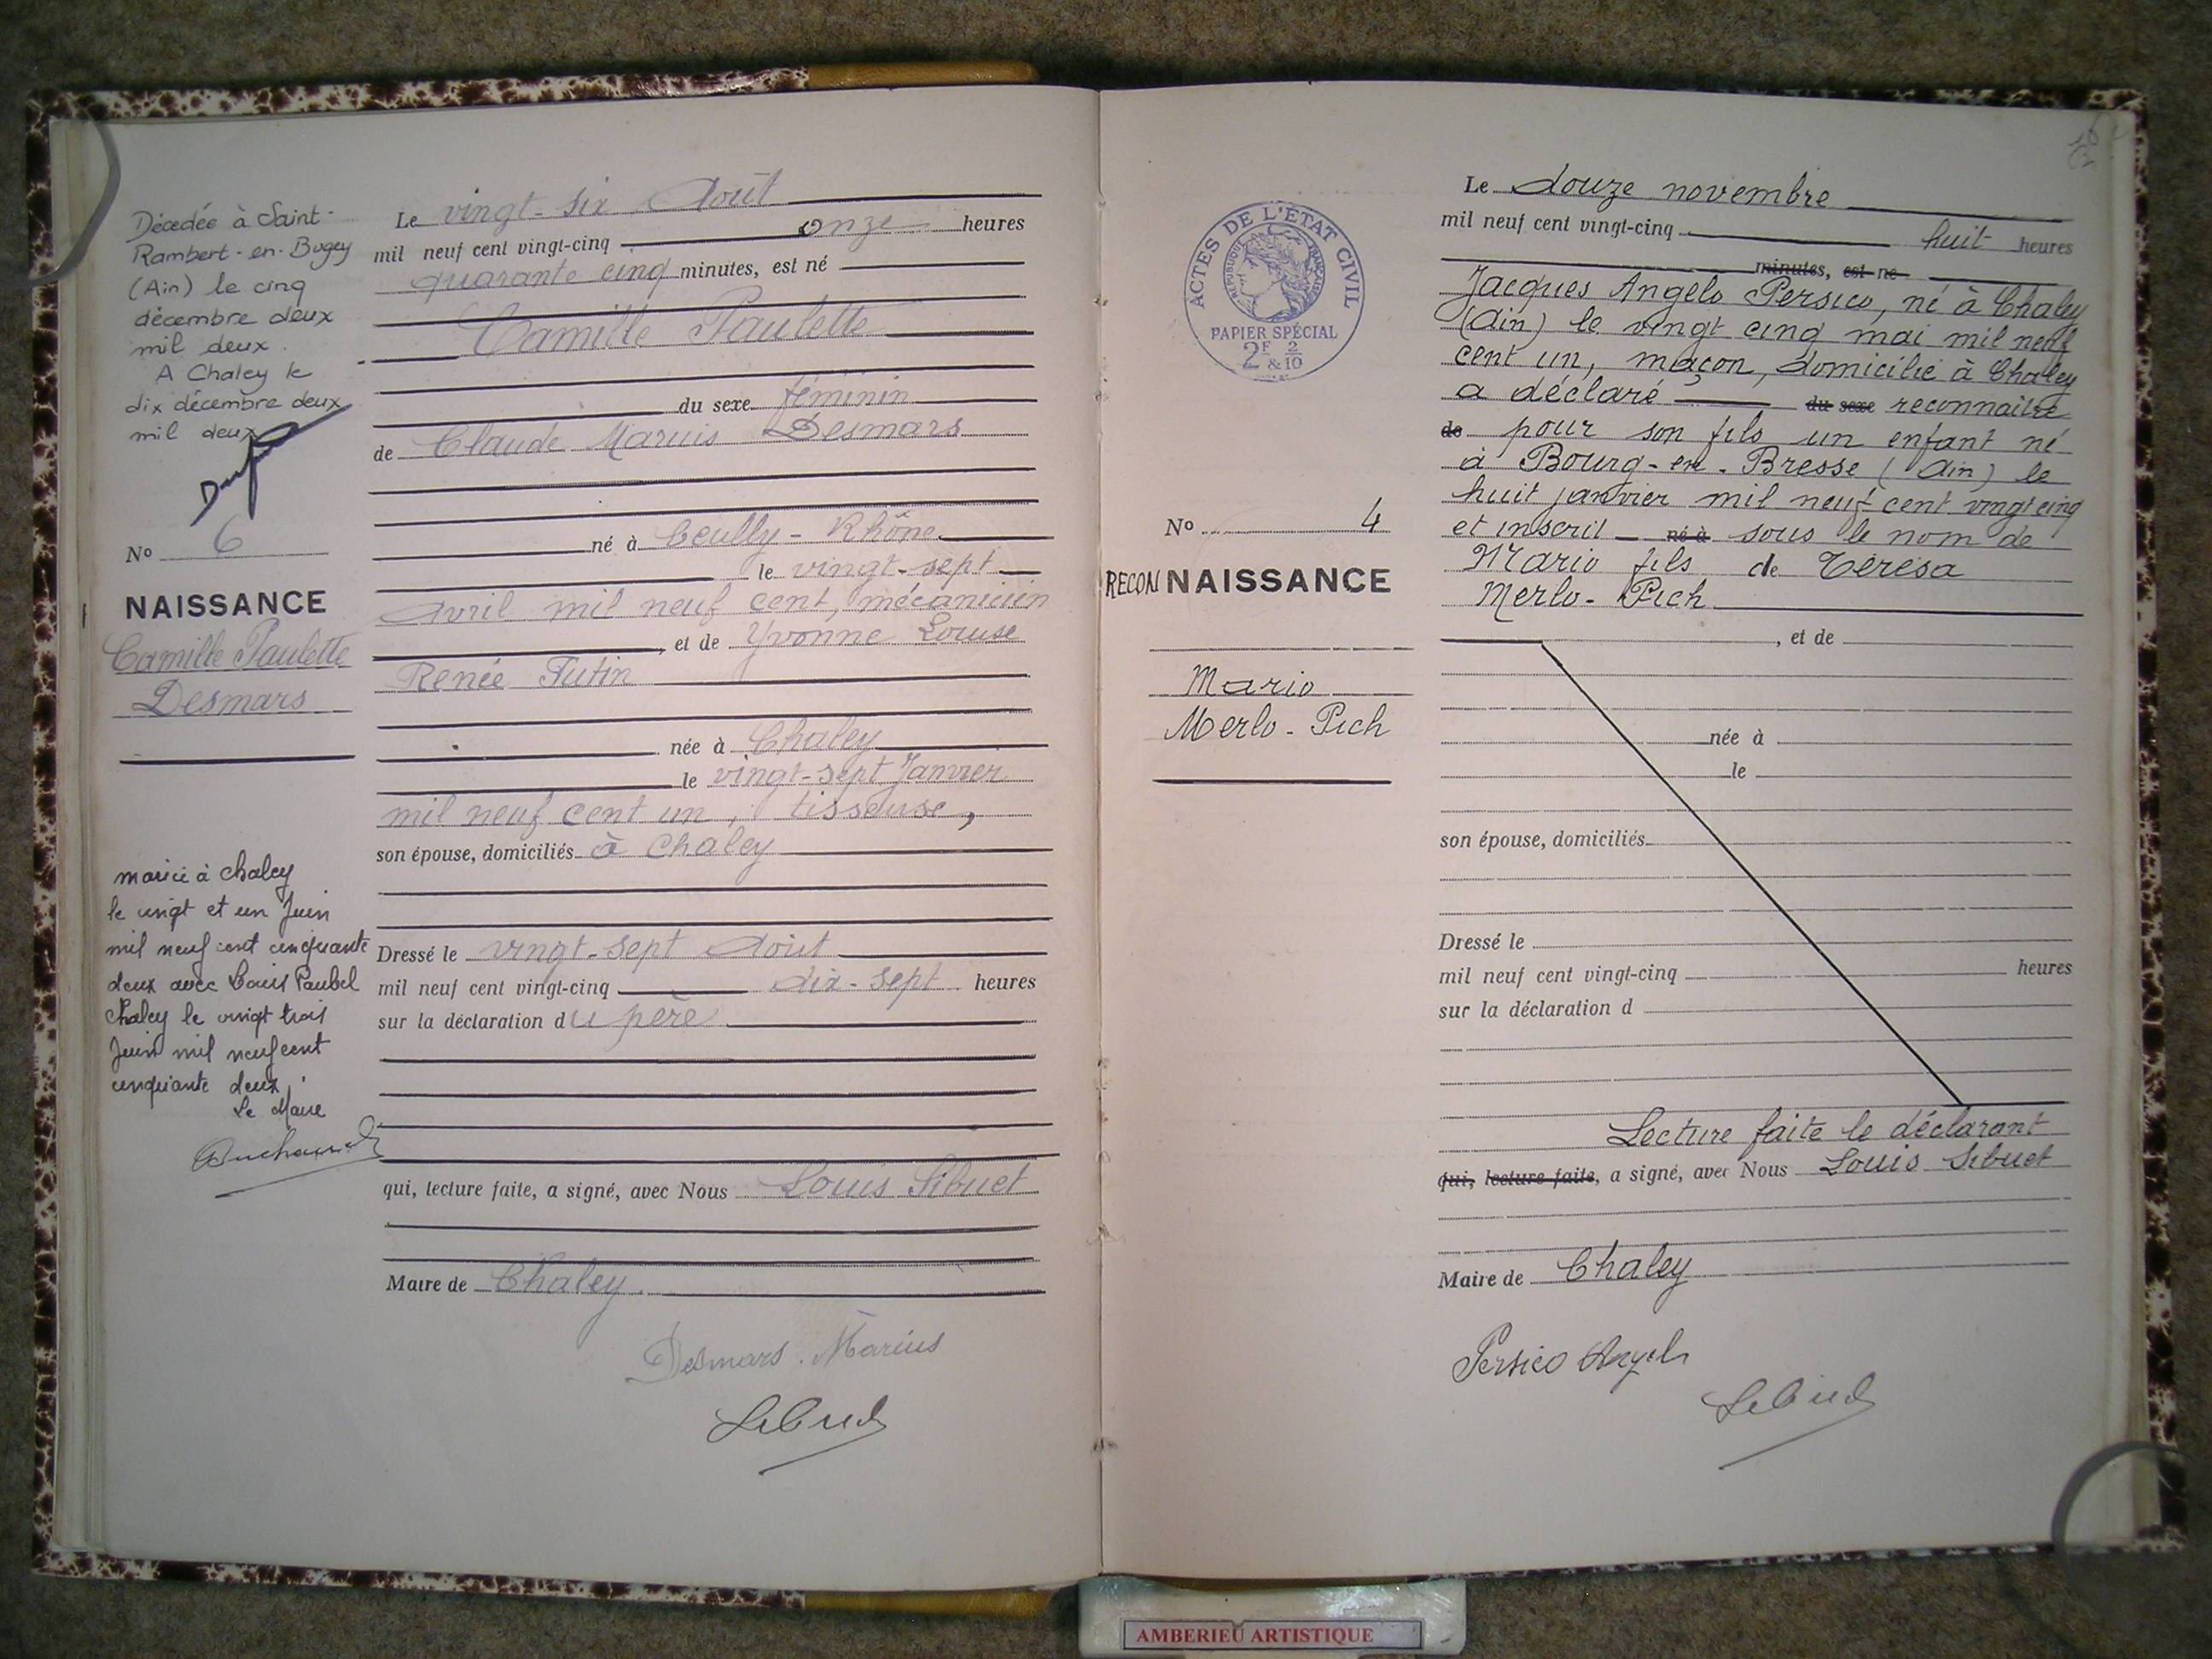 Décedée à Saint-
Rambert-en-Bugey
(Ain) le cinq
décembre deux
mil deux.
A Chaley le
dix décembre deux
mil deux
No 6
NAISSANCE
Camille Paulette
Desmars
mariée à Chaley
le vingt et un Juin
mil neuf cent cinquante
deux avec Louis Paubel
Chaley le vingt trois
Juin mil neuf cent
cinquante deux
Le Maire
Le vingt-six Août
mil neuf cent vingt-cinq onze heures
quarante cinq minutes, est né
Camille Paulette
du sexe féminin
de Claude Marius Desmars
né à Ecully - Rhône
le vingt-sept
Avril mil neuf cent, mécanicien
, et de Yvonne Louise
Renée Tutin
née à Chaley
le vingt-sept Janvier
mil neuf cent un, tisseuse,
son épouse, domiciliés à Chaley
Dressé le vingt-sept Août
mil neuf cent vingt-cinq dix-sept heures
sur la déclaration du père
qui, lecture faite, a signé, avec Nous Louis Sibuet
Maire de Chaley.
Desmars. Marius
Sibuet
ACTES DE L'ÉTAT CIVIL
RÉPUBLIQUE FRANÇAISE
PAPIER SPÉCIAL
2F & 2/10
No 4
RECONNAISSANCE
Mario
Merlo-Pich
Le douze novembre
mil neuf cent vingt-cinq huit heures
minutes, est né
Jacques Angelo Persico, né à Chaley
(Ain) le vingt cinq mai mil neuf
cent un, maçon, domicilié à Chaley
a déclaré du sexe reconnaître
de pour son fils un enfant né
à Bourg-en-Bresse (Ain) le
huit janvier mil neuf cent vingt cinq
et inscrit né à sous le nom de
Mario fils de Térésa
Merlo-Pich
, et de
née à
le
son épouse, domiciliés
Dressé le
mil neuf cent vingt-cinq heures
sur la déclaration d
Lecture faite le déclarant
qui, lecture faite, a signé, avec Nous Louis Sibuet
Maire de Chaley
Persico Angelo
Sibuet
AMBERIEU ARTISTIQUE